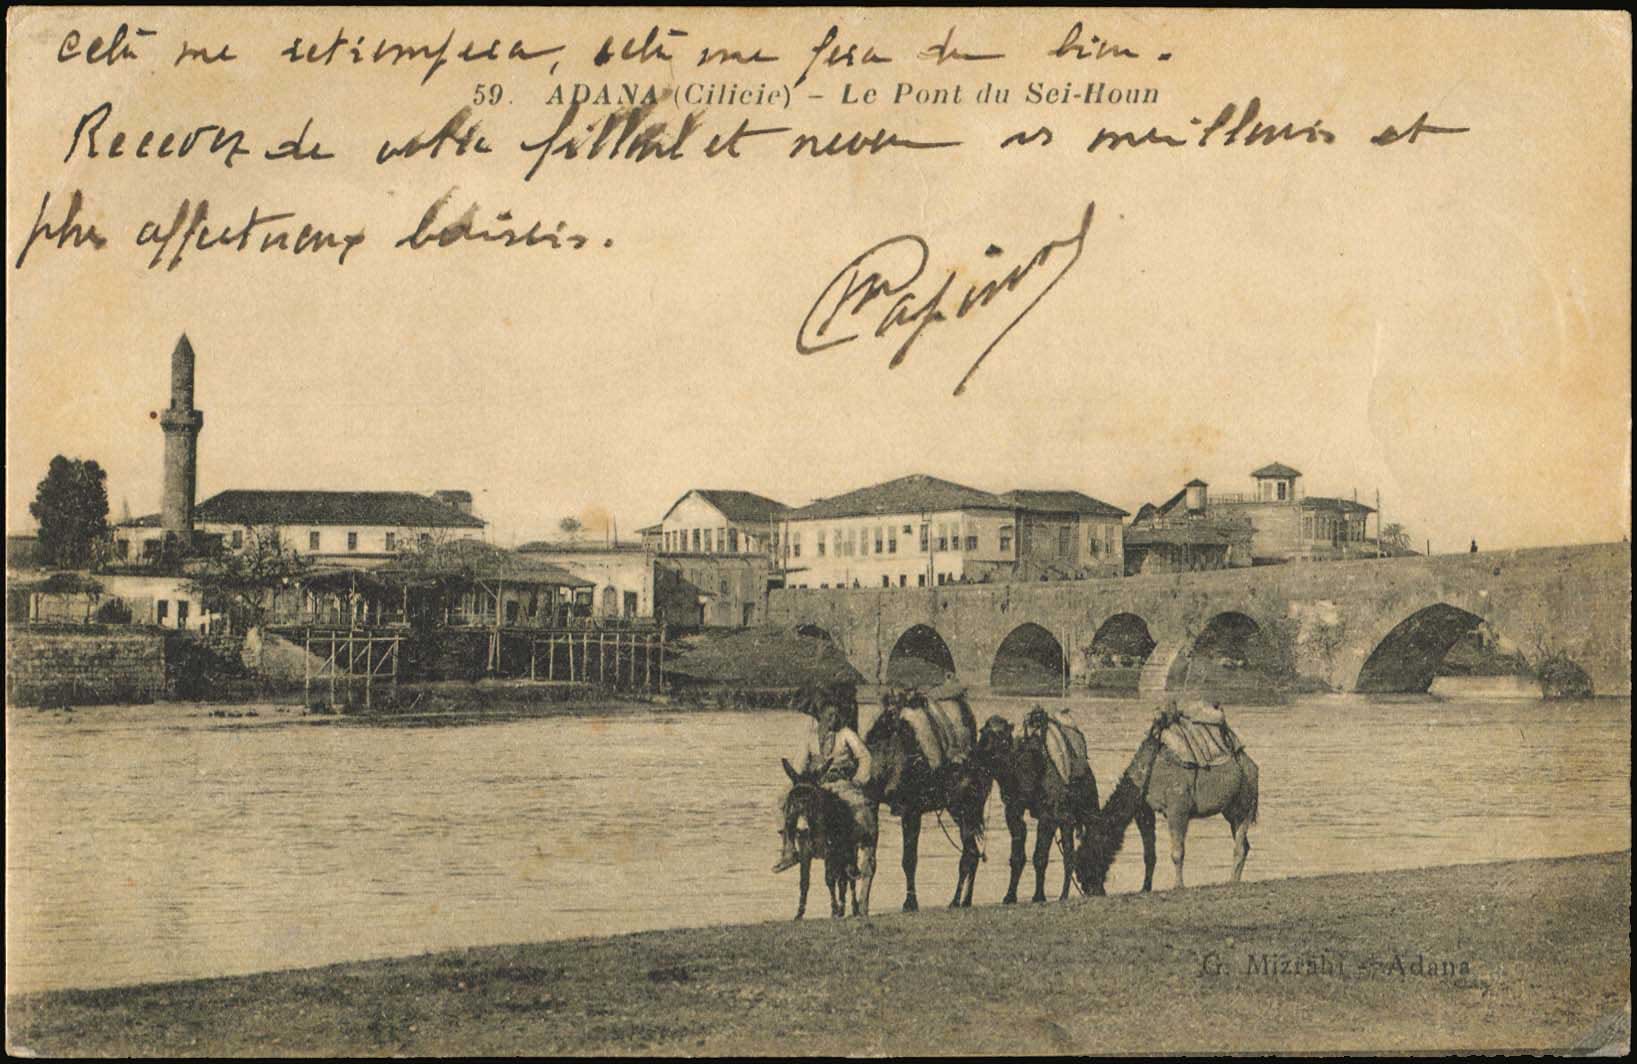 celà me retrempera, celà me fera du bien.
59. ADANA (Cilicie) – Le Pont du Sei-Houn
Recevez de votre filleul et neveu ses meilleurs et
plus affectueux baisers.
G. Mizrahi - Adana